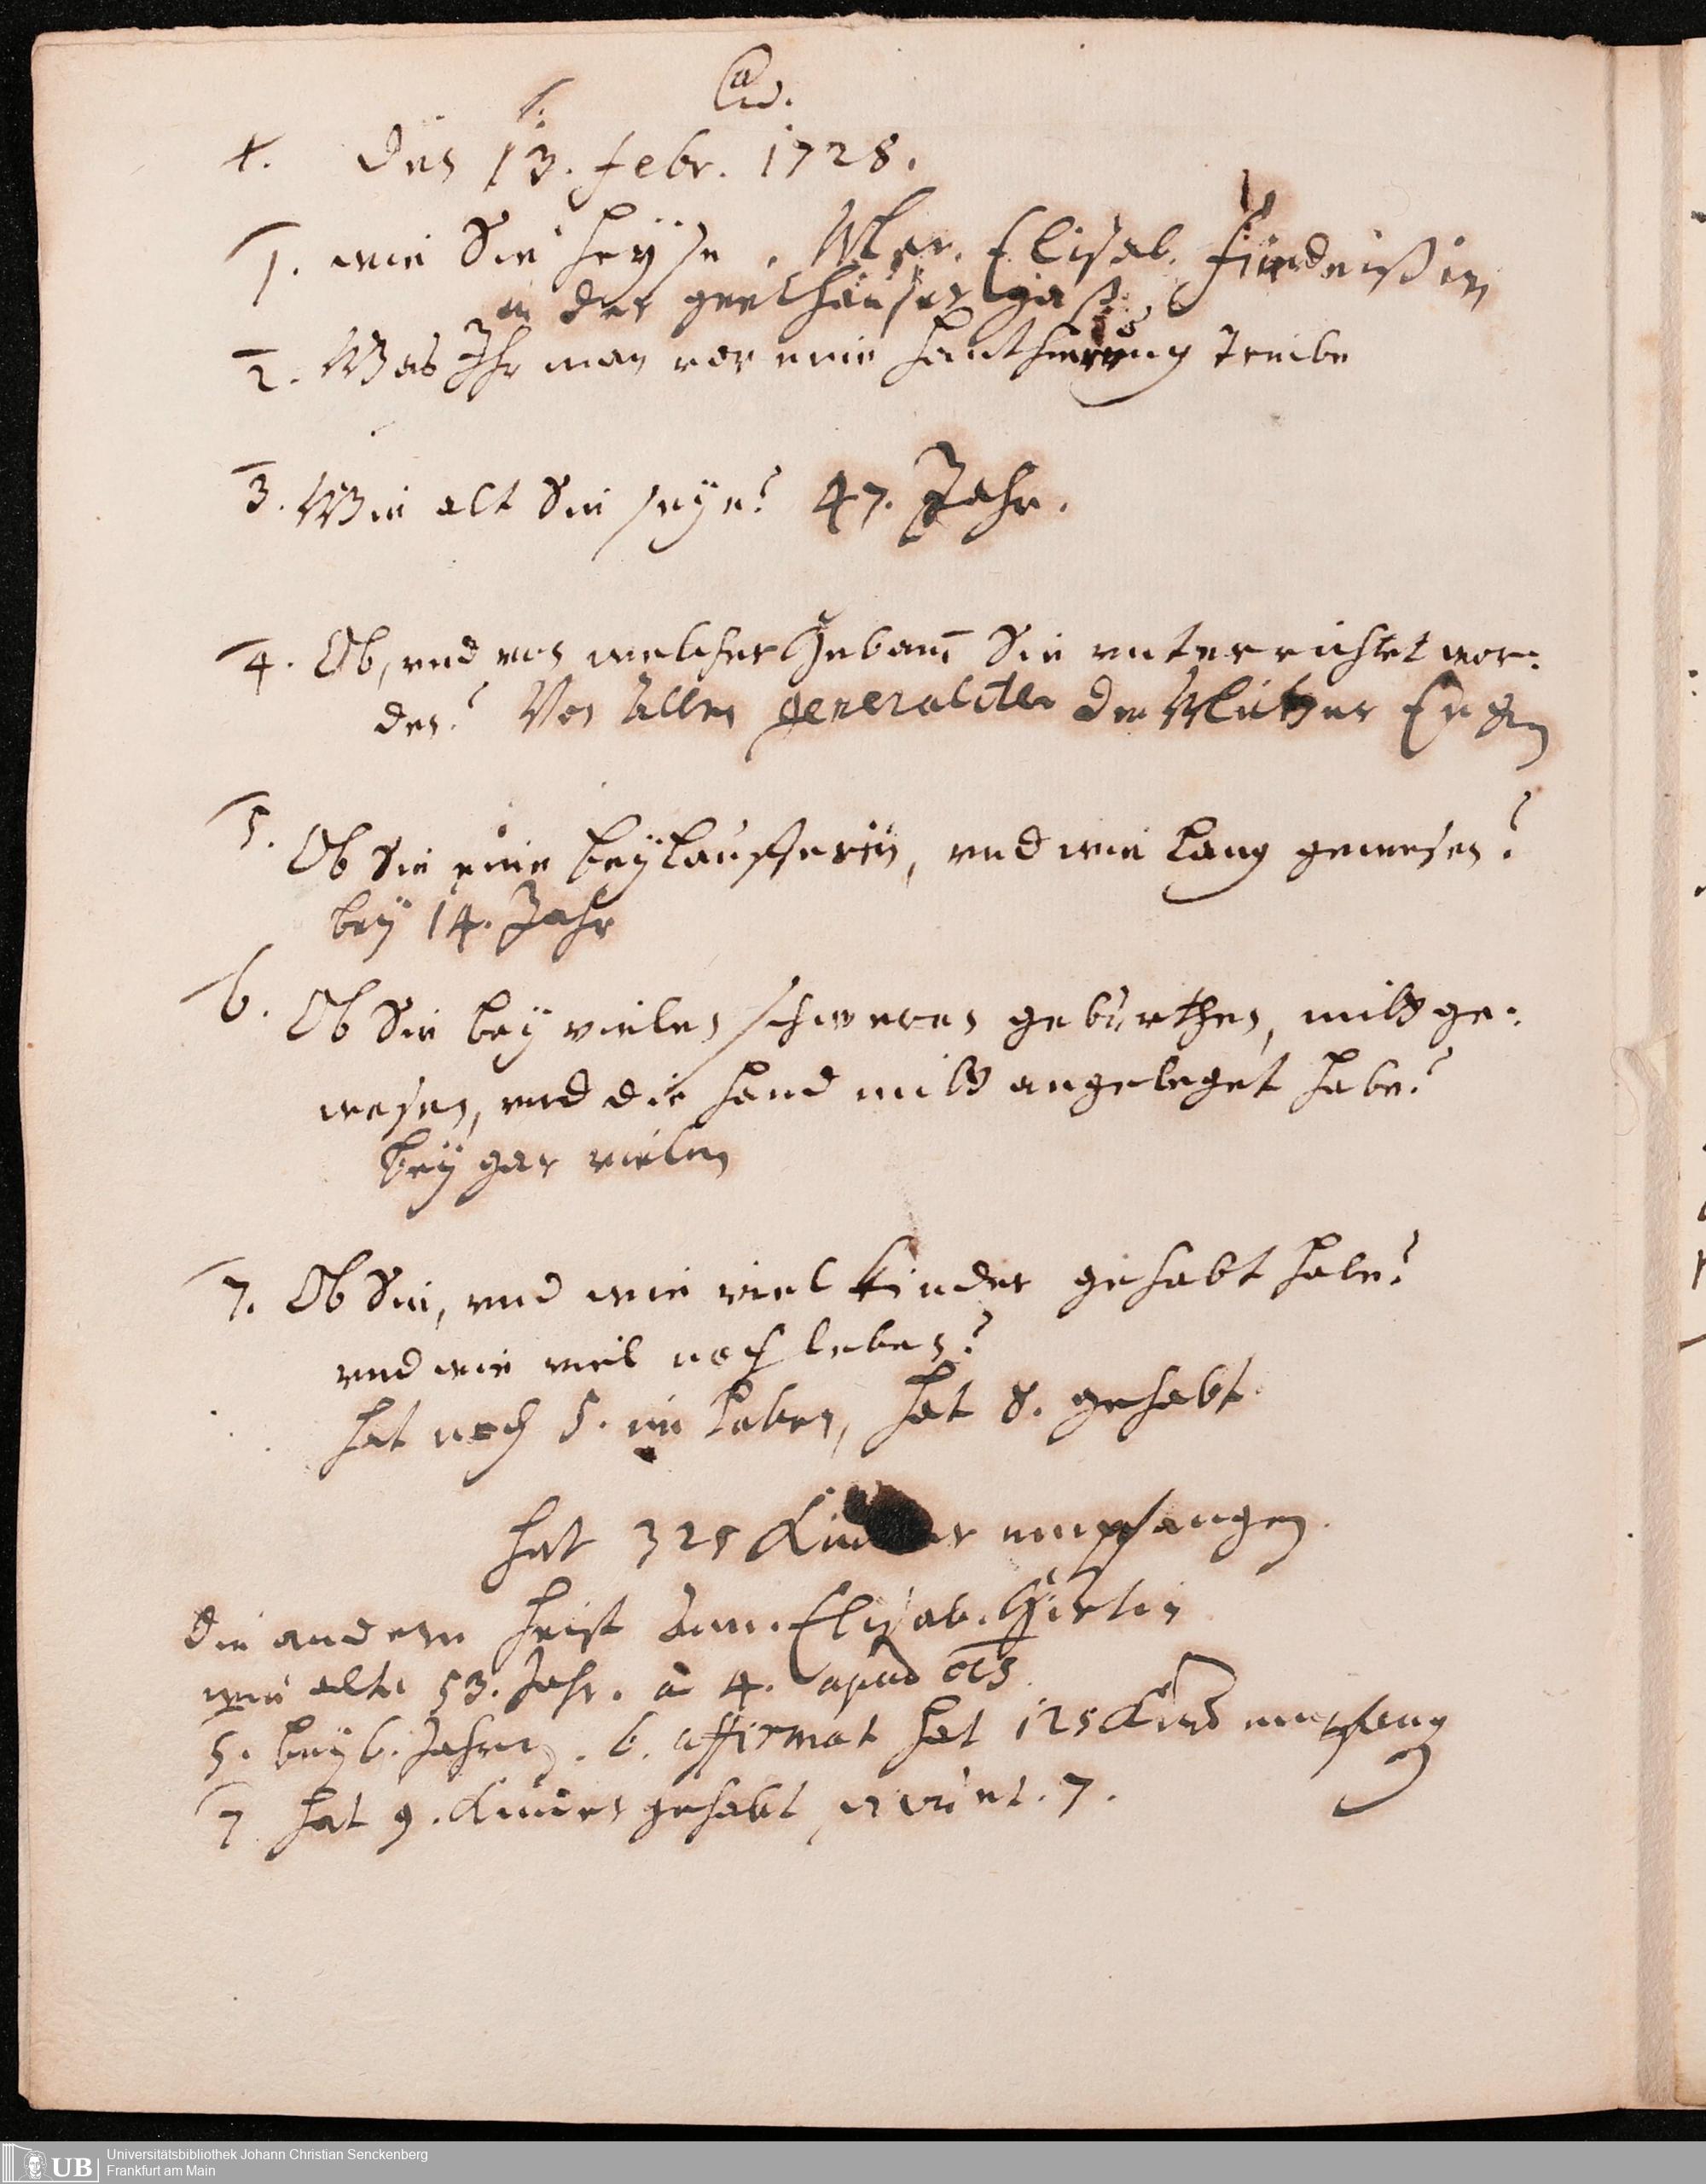 4. den 13. febr. 1728.
1. wie Sie heyse. Mar. Elisab.
in der gelhäuser gaß
2. Was Ihr man vor eine hanthierung treibe
3. Wie alt Sie seye? 47. Jahr.
4. Ob, und von welcher Hebam Sie unterrichtet wor:
den? Von Allen generaliter
5. Ob Sie eine beyläufferin, und wie lang gewesen?
bey 14. Jahr
6. Ob Sie bey vielen schweren geburthen, mitt ge:
wesen, und die hand mitt angeleget habe?
bey gar vielen
7. Ob Sie, und wie viel Kinder gehabt habe?
und wie viel noch leben?
hat noch 5. im leben, hat 8. gehabt
hat 325 Kinder empfangen.
die andere heist Ann. Elisab.
wie alt 53. Jahr. a 4. apud
5. bey 6. Jahren. 6. affirmat hat 125 Kind empfang
7 hat 9. Kinder gehabt 7.
Universitätsbibliothek Johann Christian Senckenberg
Frankfurt am Main
UB